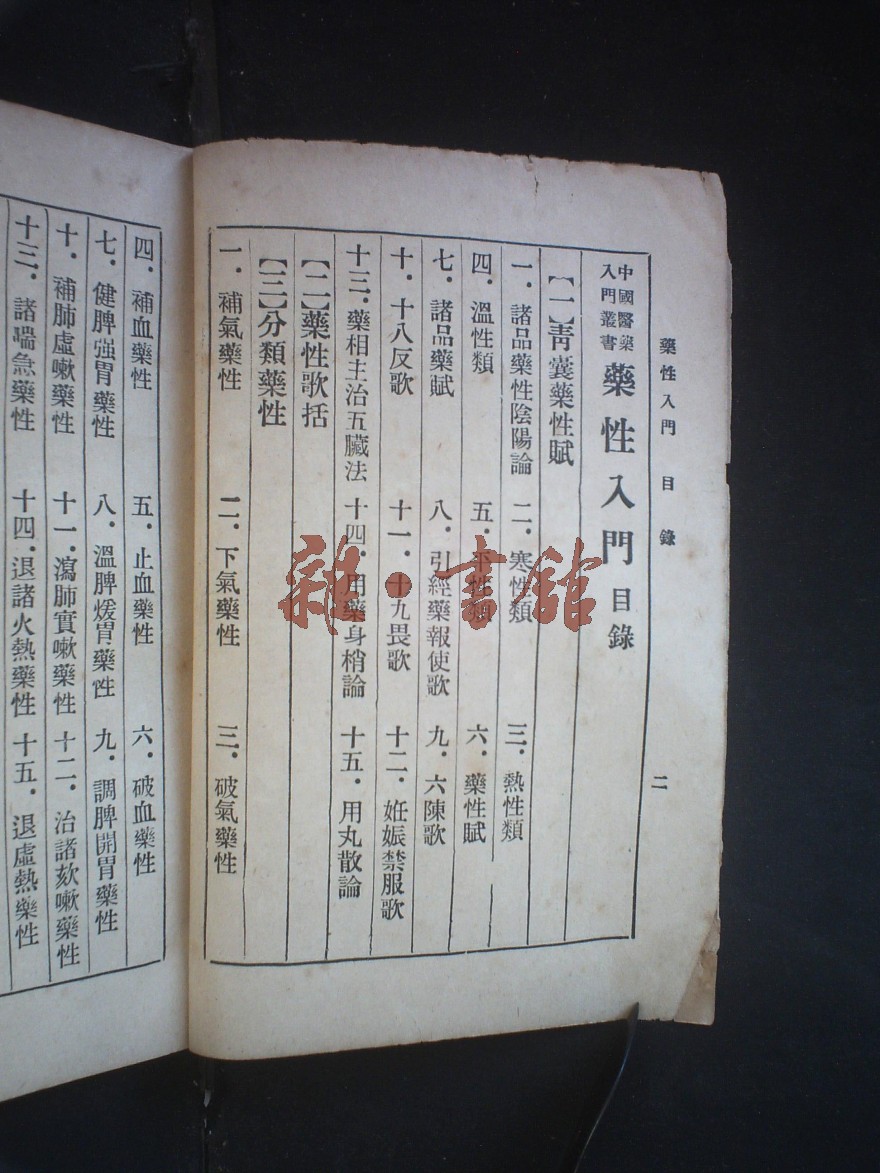 藥性入門 目錄
二
中國醫藥
入門叢書
藥性入門 目錄
【一】靑囊藥性賦
一．諸品藥性陰陽論 二．寒性類 三．熱性類
四．溫性類 五．平性類 六．藥性賦
七．諸品藥賦 八．引經藥報使歌 九．六陳歌
十．十八反歌 十一．十九畏歌 十二．妊娠禁服歌
十三．藥相主治五臟法 十四．用藥身梢論 十五．用丸散論
【二】藥性歌括
【三】分類藥性
一．補氣藥性 二．下氣藥性 三．破氣藥性
四．補血藥性 五．止血藥性 六．破血藥性
七．健脾強胃藥性 八．溫脾煖胃藥性 九．調脾開胃藥性
十．補肺虛嗽藥性 十一．瀉肺實嗽藥性 十二．治諸欬嗽藥性
十三．諸喘急藥性 十四．退諸火熱藥性 十五．退虛熱藥性
雜·書館